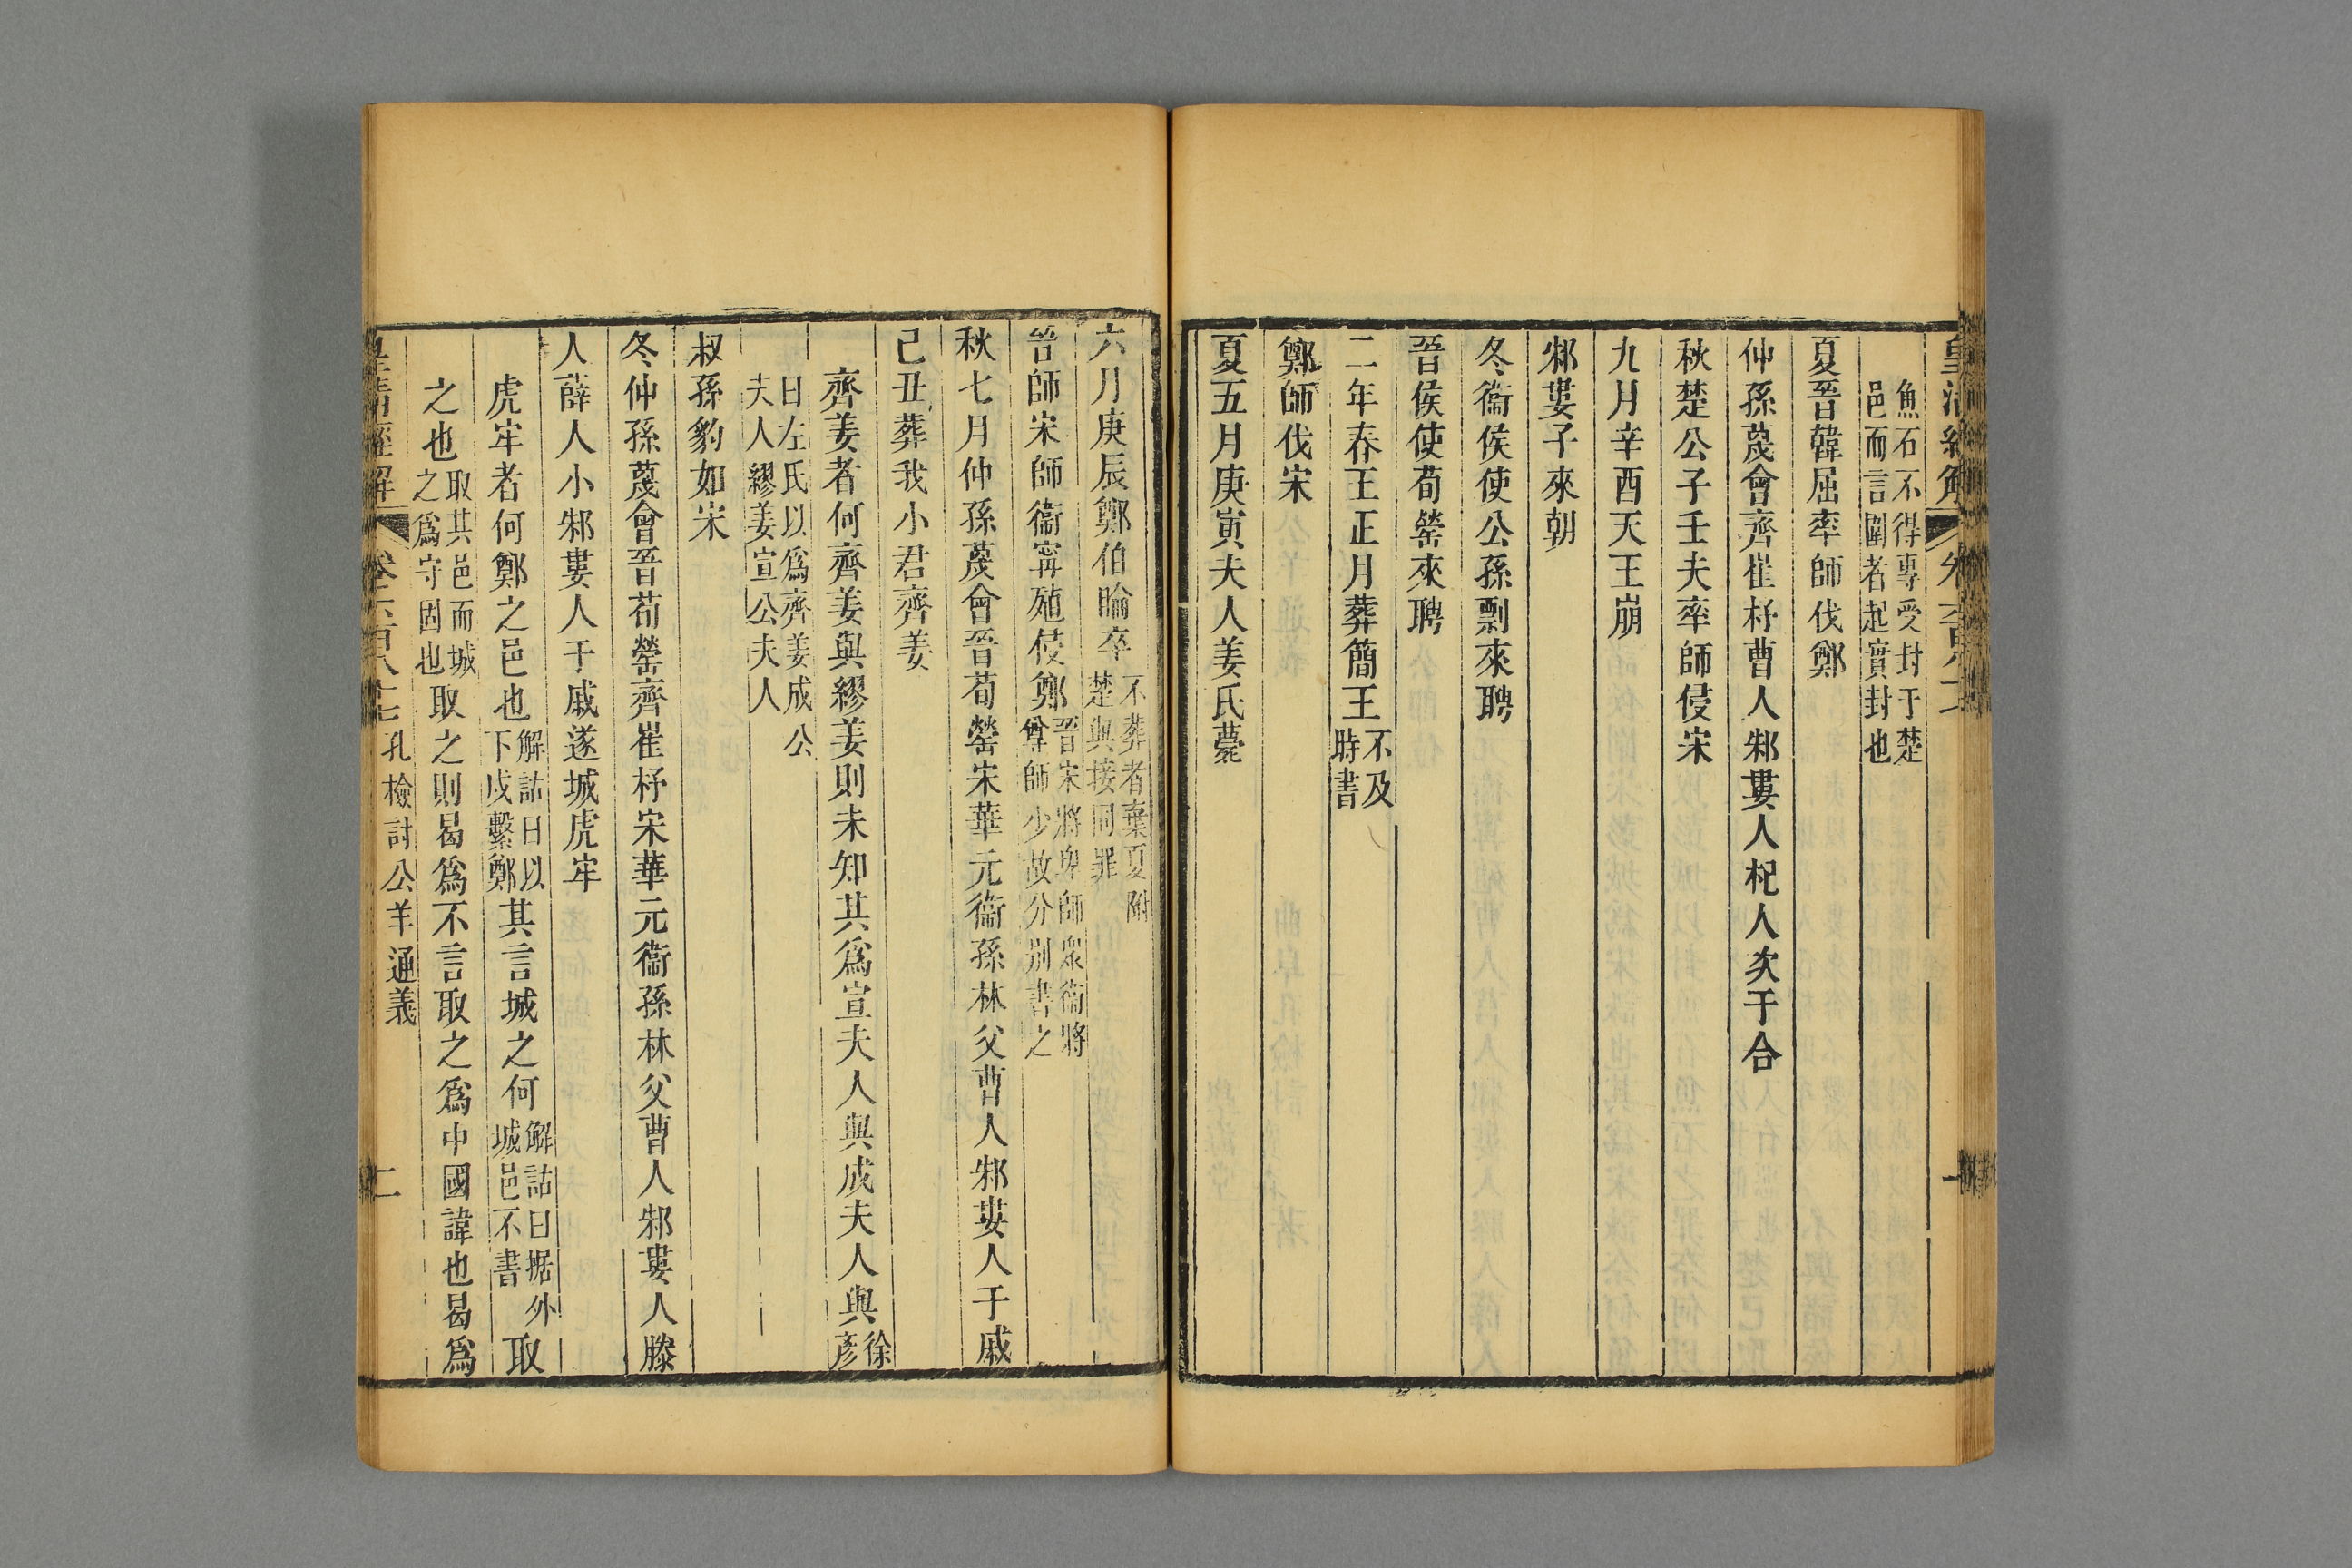 魚石不得專受封于楚
邑而言圍者起實封也
夏晉韓屈率師伐鄭
仲孫蔑會齊崔杼曹人邾婁人杞人次于合
秋楚公子壬夫率師侵宋
九月辛酉天王崩
邾婁子來朝
冬衞侯使公孫剽來聘
晉侯使荀罃來聘
二年春王正月葬簡王不及時書
鄭師伐宋
夏五月庚寅夫人姜氏薨
六月庚辰鄭伯睔卒不葬者棄夏附楚與接同罪
晉師宋師衞甯殖侵鄭晉宋將卑師眾衞將尊師少故分別書之
秋七月仲孫蔑會晉荀罃宋華元衞孫林父曹人邾婁人于戚
己丑葬我小君齊姜
齊姜者何齊姜與繆姜則未知其爲宣夫人與成夫人與徐彥
曰左氏以爲齊姜成公
夫人繆姜宣公夫人
叔孫豹如宋
冬仲孫蔑會晉荀罃齊崔杼宋華元衞孫林父曹人邾婁人滕
人薛人小邾婁人于戚遂城虎牢
虎牢者何鄭之邑也解詁曰以下戍繫鄭其言城之何解詁曰据外城邑不書取
之也取其邑而城之爲守固也取之則曷爲不言取之爲中國諱也曷爲
皇清經解 卷六百八十七 孔檢討公羊通義 二